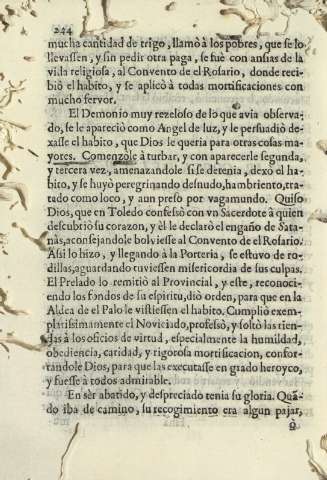 244
mucha cantidad de trigo, llamò à los pobres, que se lo
llevassen, y sin pedir otra paga, se fuè con ansias de la
vida religiosa, al Convento de el Rosario, donde reci-
biò el habito, y se aplicò à todas mortificaciones con
mucho fervor.
El Demonio muy rezeloso de lo que avia observa-
do, se le apareciò como Angel de luz, y le persuadiò de-
xasse el habito, que Dios le queria para otras cosas ma-
yores. Comenzole à turbar, y con aparecerle segunda,
y tercera vez, amenazandole si se detenia, dexo el ha-
bito, y se huyò peregrinando desnudo, hambriento, tra-
tado como loco, y aun preso por vagamundo. Quiso
Dios, que en Toledo confessò con vn Sacerdote à quien
descubriò su corazon, y èl le declarò el engaño de Sata-
nàs, aconsejandole bolviesse al Convento de el Rosario.
Assi lo hizo, y llegando à la Porteria, se estuvo de ro-
dillas, aguardando tuviessen misericordia de sus culpas.
El Prelado lo remitiò al Provincial, y este, reconoci-
endo los fondos de su espiritu, diò orden, para que en la
Aldea de el Palo le vistiessen el habito. Cumpliò exem-
platissimamente el Noviciado, professò, y soltò las rien-
das à los oficios de virtud, especialmente la humildad,
obediencia, caridad, y rigorosa mortificacion, confor-
tandole Dios, para que las executasse en grado heroyco,
y fuesse à todos admirable.
En sèr abatido, y despreciado tenia su gloria. Quã-
do iba de camino, su recogimiento era algun pajar,